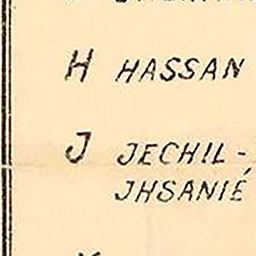 H HASSAN
J JECHIL-
JHSANIÉ